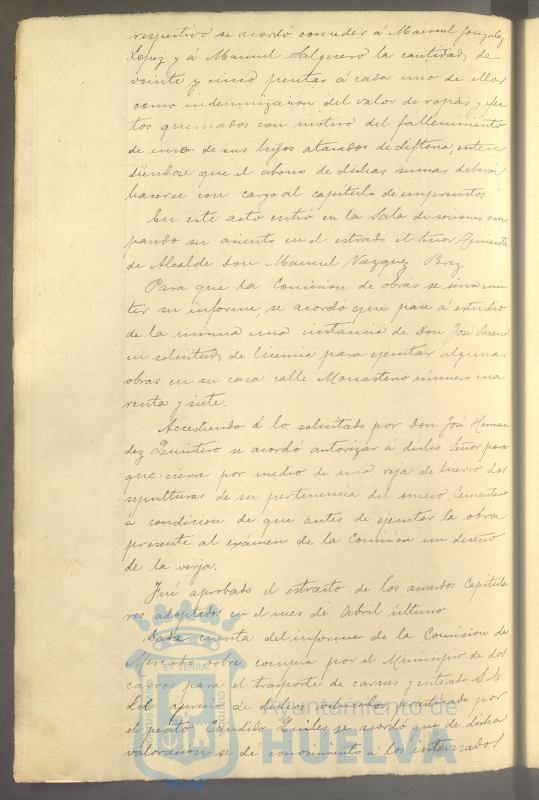 respectivo se acordó conceder á Manuel Gonzalez
Lopez y á Manuel Salguero la cantidad de
veinte y cinco pesetas á cada uno de ellos
como indemnizacion del valor de ropas y efec
tos quemados con motivo del fallecimiento
de uno de sus hijos atacados de difteria, enten
diéndose que el abono de dichas sumas deberá
hacerse con cargo al capitulo de imprevistos
En este acto entró en la Sala de sesiones ocu
pando su asiento en el estrado el Señor Teniente
de Alcalde Don Manuel Vazquez Perez
Para que la Comision de obras se sirva emi
tir su informe, se acordó que pase á estudio
de la misma una instancia de Don José
en solicitud de licencia para ejecutar algunas
obras en su casa calle Monasterio número cua
renta y siete.
Accediendo á lo solicitado por Don José Hernan
dez Quintero se acordó autorizar á dicho Señor para
que cierre por medio de una reja de hierro dos
sepulturas de su pertenencia del nuevo Cementerio
á condicion de que antes de ejecutar la obra
presente al exámen de la Comision un diseño
de la verja.
Fué aprobado el extracto de los acuerdos Capitula
res adoptados en el mes de Abril último.
Dada cuenta del informe de la Comision de
Mercado sobre compra por el Municipio de dos
carros para el trasporte de carnes y enterado S. E.
del aprecio de dichos vehiculos practicado por
el perito Candido Quiles, se acordó que de dicha
valoracion se dé conocimiento á los interesados
Ayuntamiento de
HUELVA